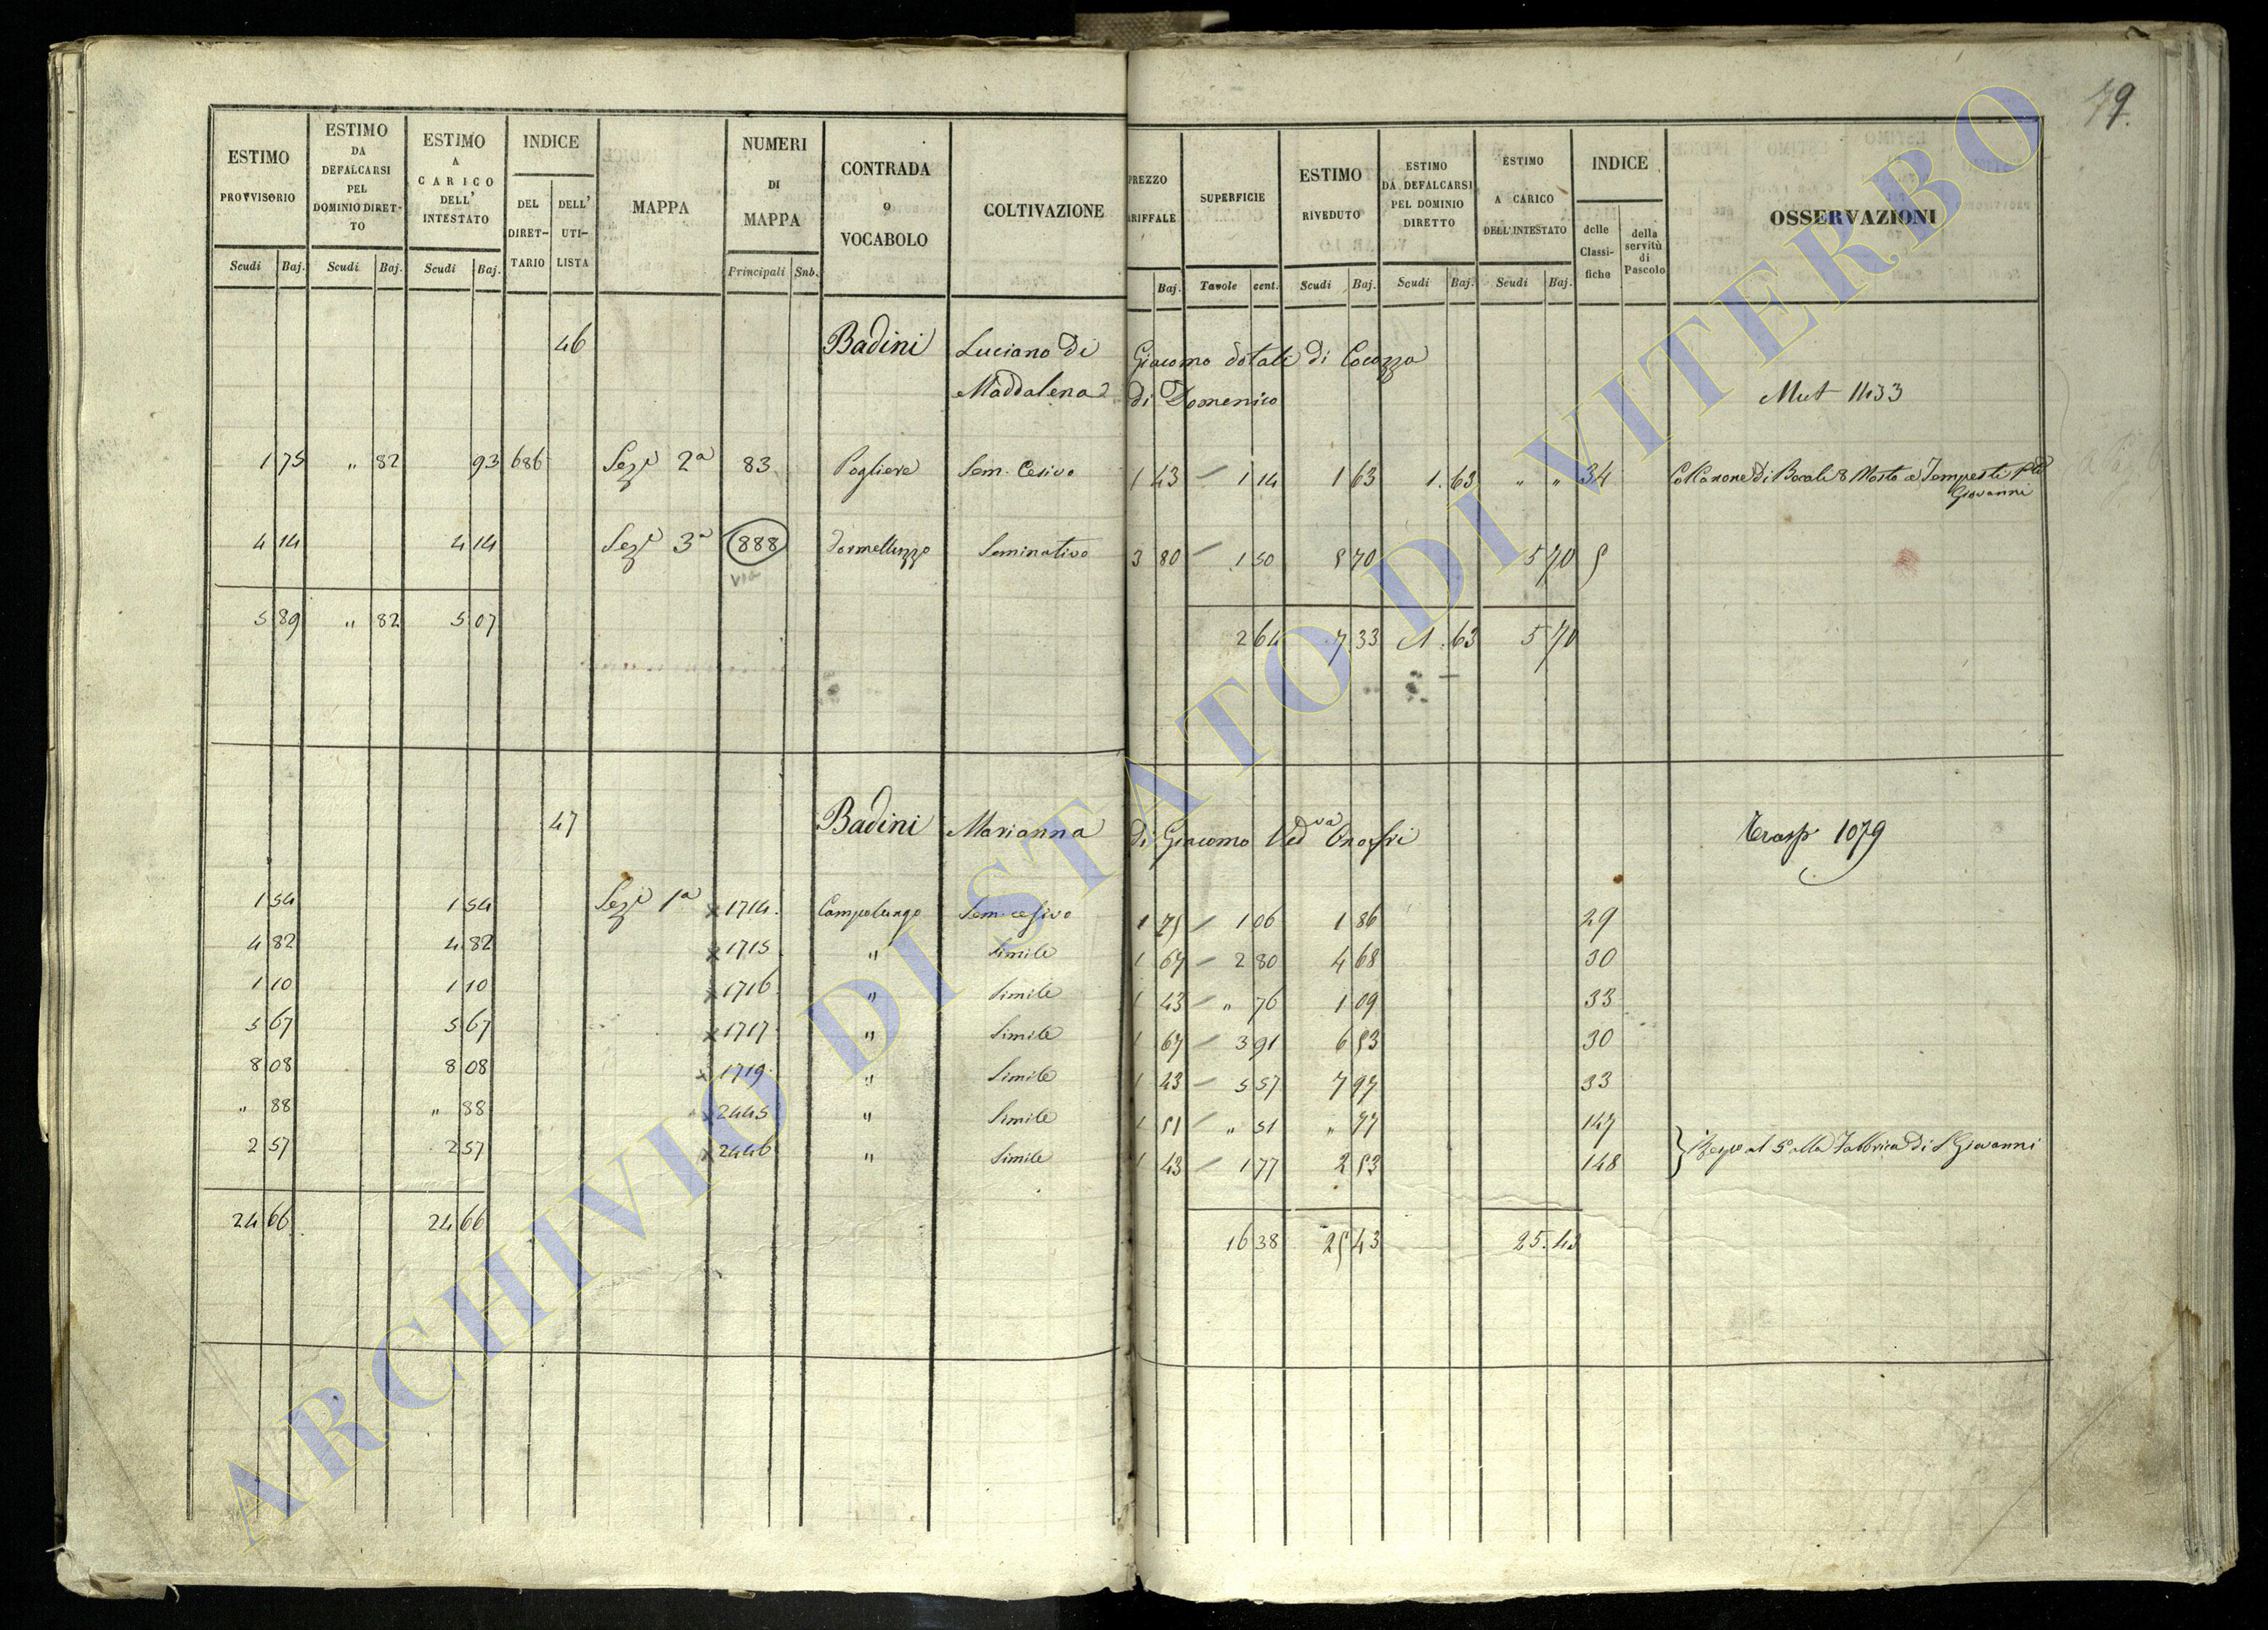 79.
ESTIMO PROVVISORIO
Scudi Baj.
ESTIMO DA DEFALCARSI PEL DOMINIO DIRET-TO
Scudi Baj.
ESTIMO A CARICO DELL' INTESTATO
Scudi Baj.
INDICE
DEL DIRET-TARIO
DELL' UTI-LISTA
MAPPA
NUMERI DI MAPPA
Principali Sub.
CONTRADA O VOCABOLO
COLTIVAZIONE
PREZZO
RIFFALE
Baj.
SUPERFICIE
Tavole cent.
ESTIMO RIVEDUTO
Scudi Baj.
ESTIMO DA DEFALCARSI PEL DOMINIO DIRETTO
Scudi Baj.
ESTIMO A CARICO DELL'INTESTATO
Scudi Baj.
INDICE
delle Classi-fiche
della servitù di Pascolo
OSSERVAZIONI
46 Badini Luciano di Giacomo dotale di Cocozza
Maddalena di Domenico Mut 1133
1 75 " 82 93 686 Sezi 2a 83 Pogliere Sem. Cesivo 1 43 1 14 1 63 1.63 " " 34 Giovanni
4 14 4 14 Sezi 3a 888 Seminativo 3 80 1 50 5 70 5 70 5
via
5 89 " 82 5 07 2 64 7 33 1.63 5 70
47 Badini Marianna di Giacomo Ved.va Onofri Trasp 1079
1 54 1 54 Sezi 1a x 1714. Campolungo Sem. cesivo 1 75 1 06 1 86 29
4 82 4 82 x 1715 " Simile 1 67 2 80 4 68 30
1 10 1 10 x 1716 " Simile 1 43 " 76 1 09 33
5 67 5 67 x 1717 " Simile 1 67 3 91 6 53 30
8 08 8 08 x 1719 " Simile 1 43 5 57 7 97 33
" 88 " 88 x 2445 " Simile 1 51 " 51 " 77 147
2 57 2 57 x 2446 " Simile 1 43 1 77 2 53 148 al 5o alla Fabbrica di S. Giovanni
24 66 24 66 16 38 25 43 25.43
ARCHIVIO DI STATO DI VITERBO